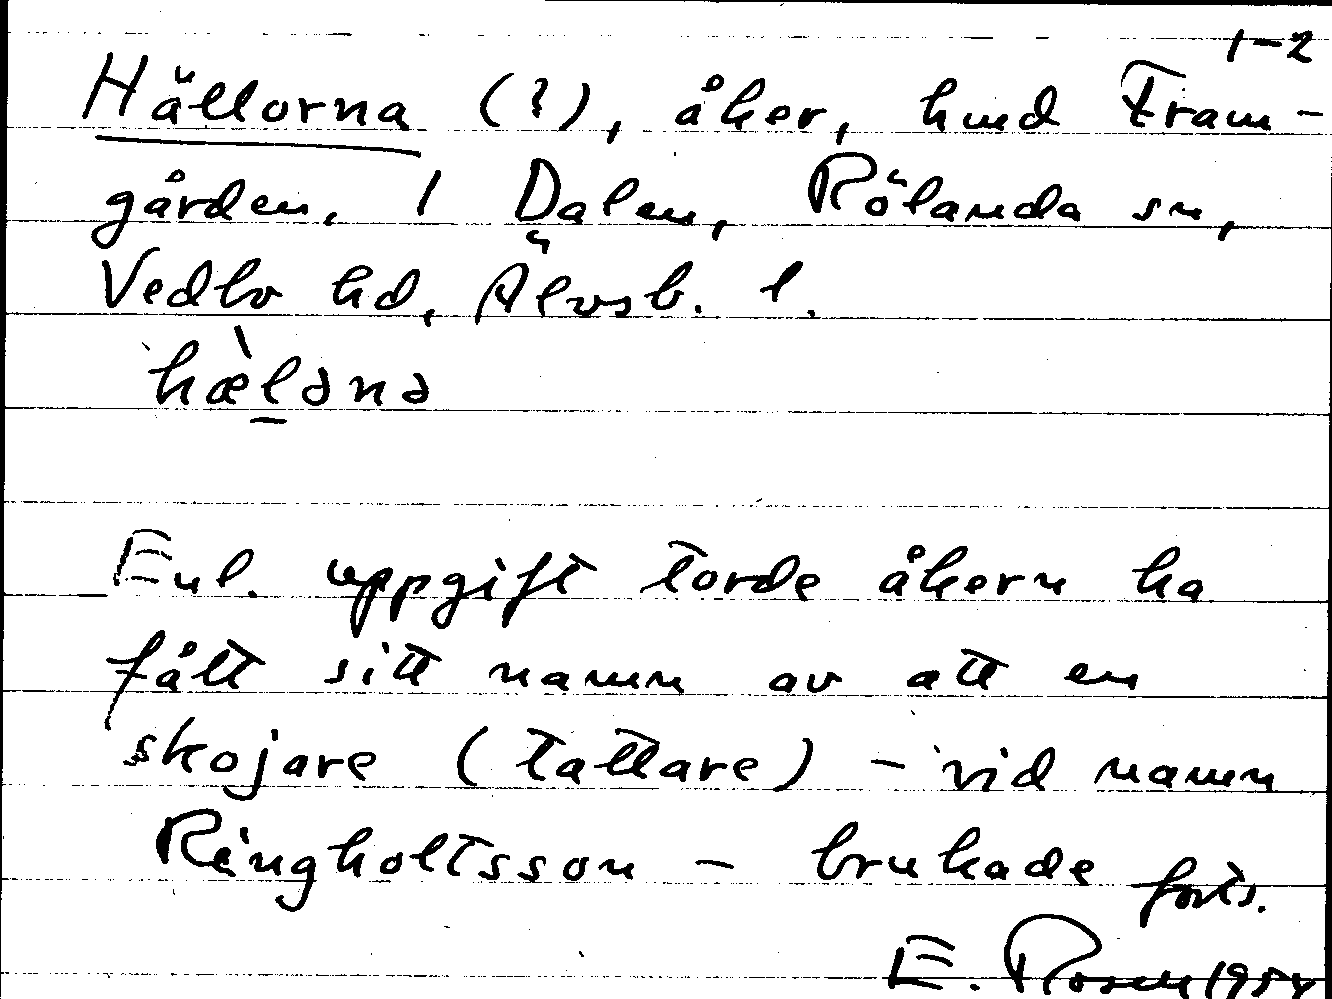 1-2
Hällorna (?), åker, hmd Fram-
gården, 1 Dalen, Rölanda sn,
Vedbo hd, Älvsb. l.
hæ̀lə̱nə
Enl. uppgift torde åkern ha
fått sitt namn av att en
skojare (tattare) – vid namn
Ringholtsson – brukade forts.
E. Rosen 1954